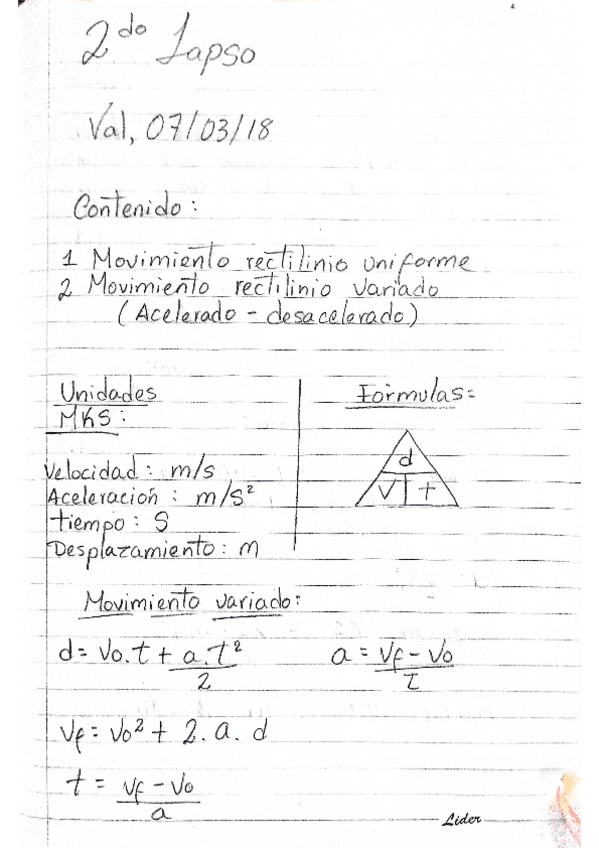 2do Lapso
Val, 07/03/18
Contenido:
1 Movimiento rectilinio uniforme
2 Movimiento rectilinio variado
(Acelerado - desacelerado)
Unidades
MKS:
Velocidad: m/s
Aceleración: m/s²
tiempo: S
Desplazamiento: m
Fórmulas=
d
V t
Movimiento variado:
d= Vo.t + a.t²
2
a= Vf - Vo
t
Vf = Vo² + 2. a. d
t = Vf - Vo
a
Lider